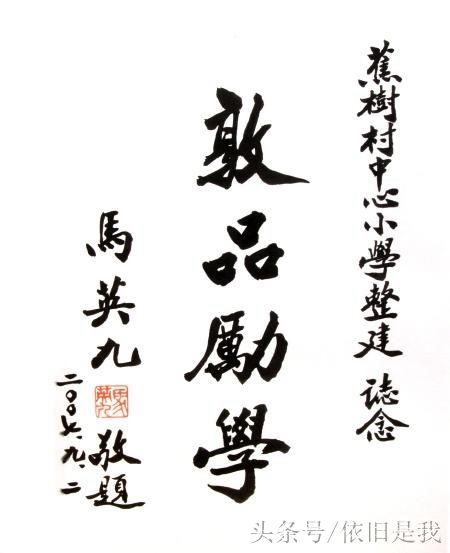 蕉樹村中心小學整建 誌念
敦品勵學
馬英九 敬題
馬英九
二〇〇七.九.二
头条号/依旧是我